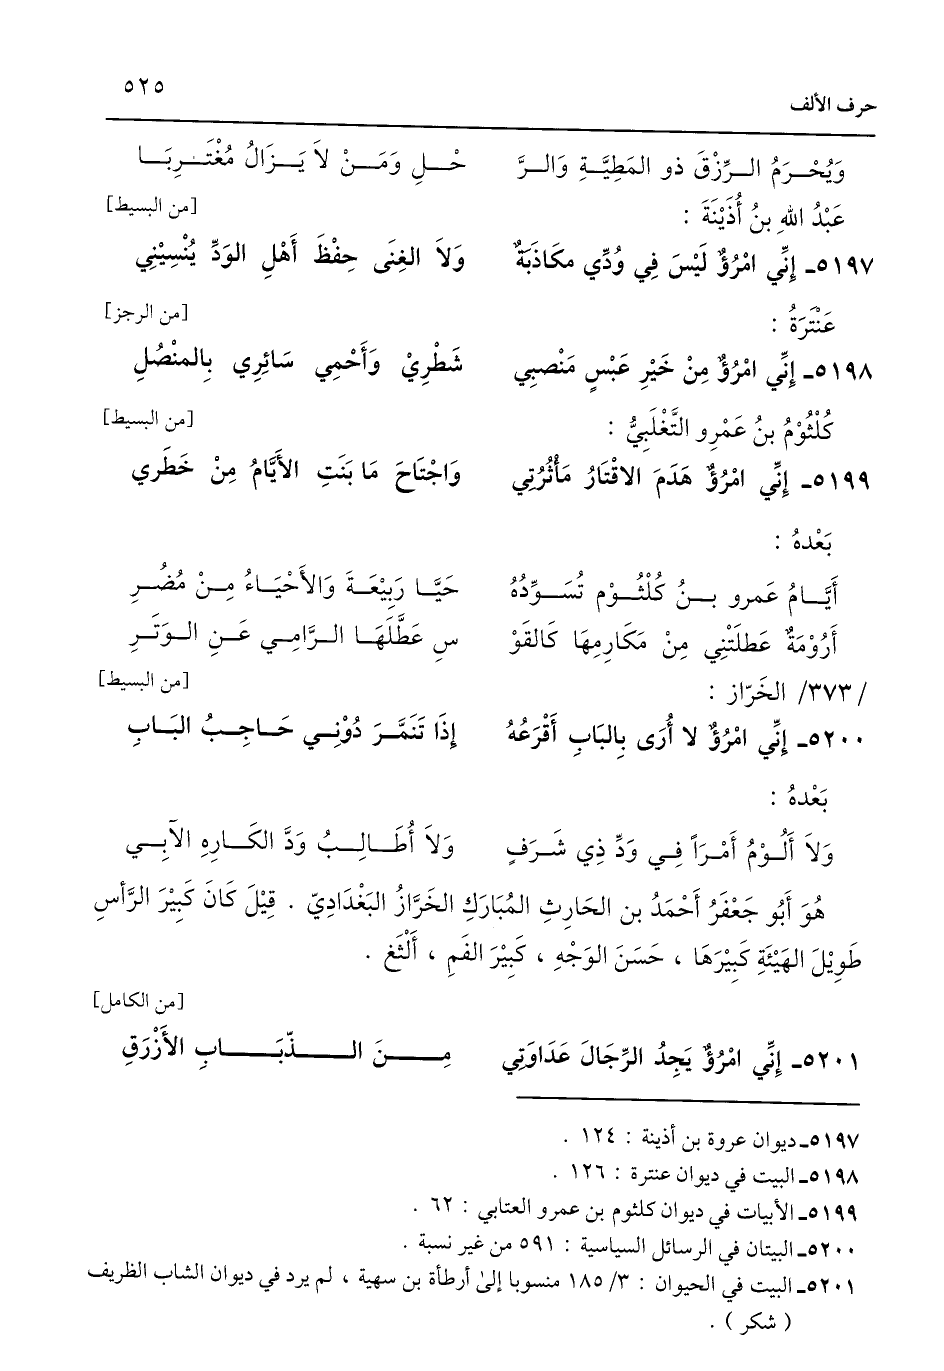 حرف الألف ٥٢٥
وَيُحْـرَمُ الـرِّزْقَ ذو المَطِيَّـةِ وَالـرَّ حْـلِ وَمَـنْ لاَ يَـزَالُ مُغْتَـرِبَـا
عَبْدُ اللهِ بنُ أُذَيْنَةَ : [من البسيط]
٥١٩٧ـ إِنِّي امْرُؤٌ لَيْسَ فِي وُدِّي مكَاذَبَةٌ وَلاَ الغِنَى حِفْظَ أَهْلِ الوَدِّ يُنْسِيْنِي
عَنْتَرَةُ : [من الرجز]
٥١٩٨ـ إِنِّي امْرُؤٌ مِنْ خَيْرِ عَبْسٍ مَنْصبِي شَطْرِيْ وَأَحْمِي سَائِرِي بِالمنْصُلِ
كُلْثُوْمُ بنُ عَمْرِو التَّغْلَبِيُّ : [من البسيط]
٥١٩٩ـ إِنِّي امْرُؤٌ هَدَمَ الاقْتَارُ مَأْثُرُتِي وَاجْتَاحَ مَا بَنَتِ الأَيَّامُ مِنْ خَطَري
بَعْدهُ :
أَيَّـامُ عَمرو بـنُ كُلْثُـوْم تُسَـوِّدُهُ حَيَّـا رَبِيْعَـةَ وَالأَحْيَـاءُ مِـنْ مُضَـرِ
أَرُوْمَةٌ عَطلَتْنِي مِنْ مَكَارِمِهَا كَالقَوْ سِ عَطَّلَهَا الـرَّامِـي عَـنِ الـوَتَـرِ
/٣٧٣/ الخَرّاز : [من البسيط]
٥٢٠٠ـ إِنِّي امْرُؤٌ لا أُرَى بِالبَابِ أَقْرَعُهُ إِذَا تَنَمَّـرَ دُوْنِـي حَـاجِـبُ البَـابِ
بَعْدهُ :
وَلاَ أَلُـوْمُ أَمْـرَاً فِـي وَدِّ ذِي شَـرَفٍ وَلاَ أُطَـالِـبُ وَدَّ الكَـارِهِ الآبِـي
هُوَ أَبُو جَعْفَرُ أَحْمَدُ بن الحَارِثِ المُبَارَكِ الخَرَّازُ البَغْدَادِيّ . قِيْلَ كَانَ كَبِيْرَ الرَّأسِ
طَوِيْلَ الهَيْئَةِ كَبِيْرَهَا ، حَسَنَ الوَجْهِ ، كَبِيْرَ الفَمِ ، أَلْثَغ .
[من الكامل]
٥٢٠١ـ إِنِّي امْرُؤٌ يَجِدُ الرِّجَالَ عَدَاوَتِي مِـنَ الـذّبَـابِ الأَزْرَقِ
٥١٩٧ـ ديوان عروة بن أذينة : ١٢٤ .
٥١٩٨ـ البيت في ديوان عنترة : ١٢٦ .
٥١٩٩ـ الأبيات في ديوان كلثوم بن عمرو العتابي : ٦٢ .
٥٢٠٠ـ البيتان في الرسائل السياسية : ٥٩١ من غير نسبة .
٥٢٠١ـ البيت في الحيوان : ٣/ ١٨٥ منسوبا إلى أرطأة بن سهية ، لم يرد في ديوان الشاب الظريف
( شكر ) .